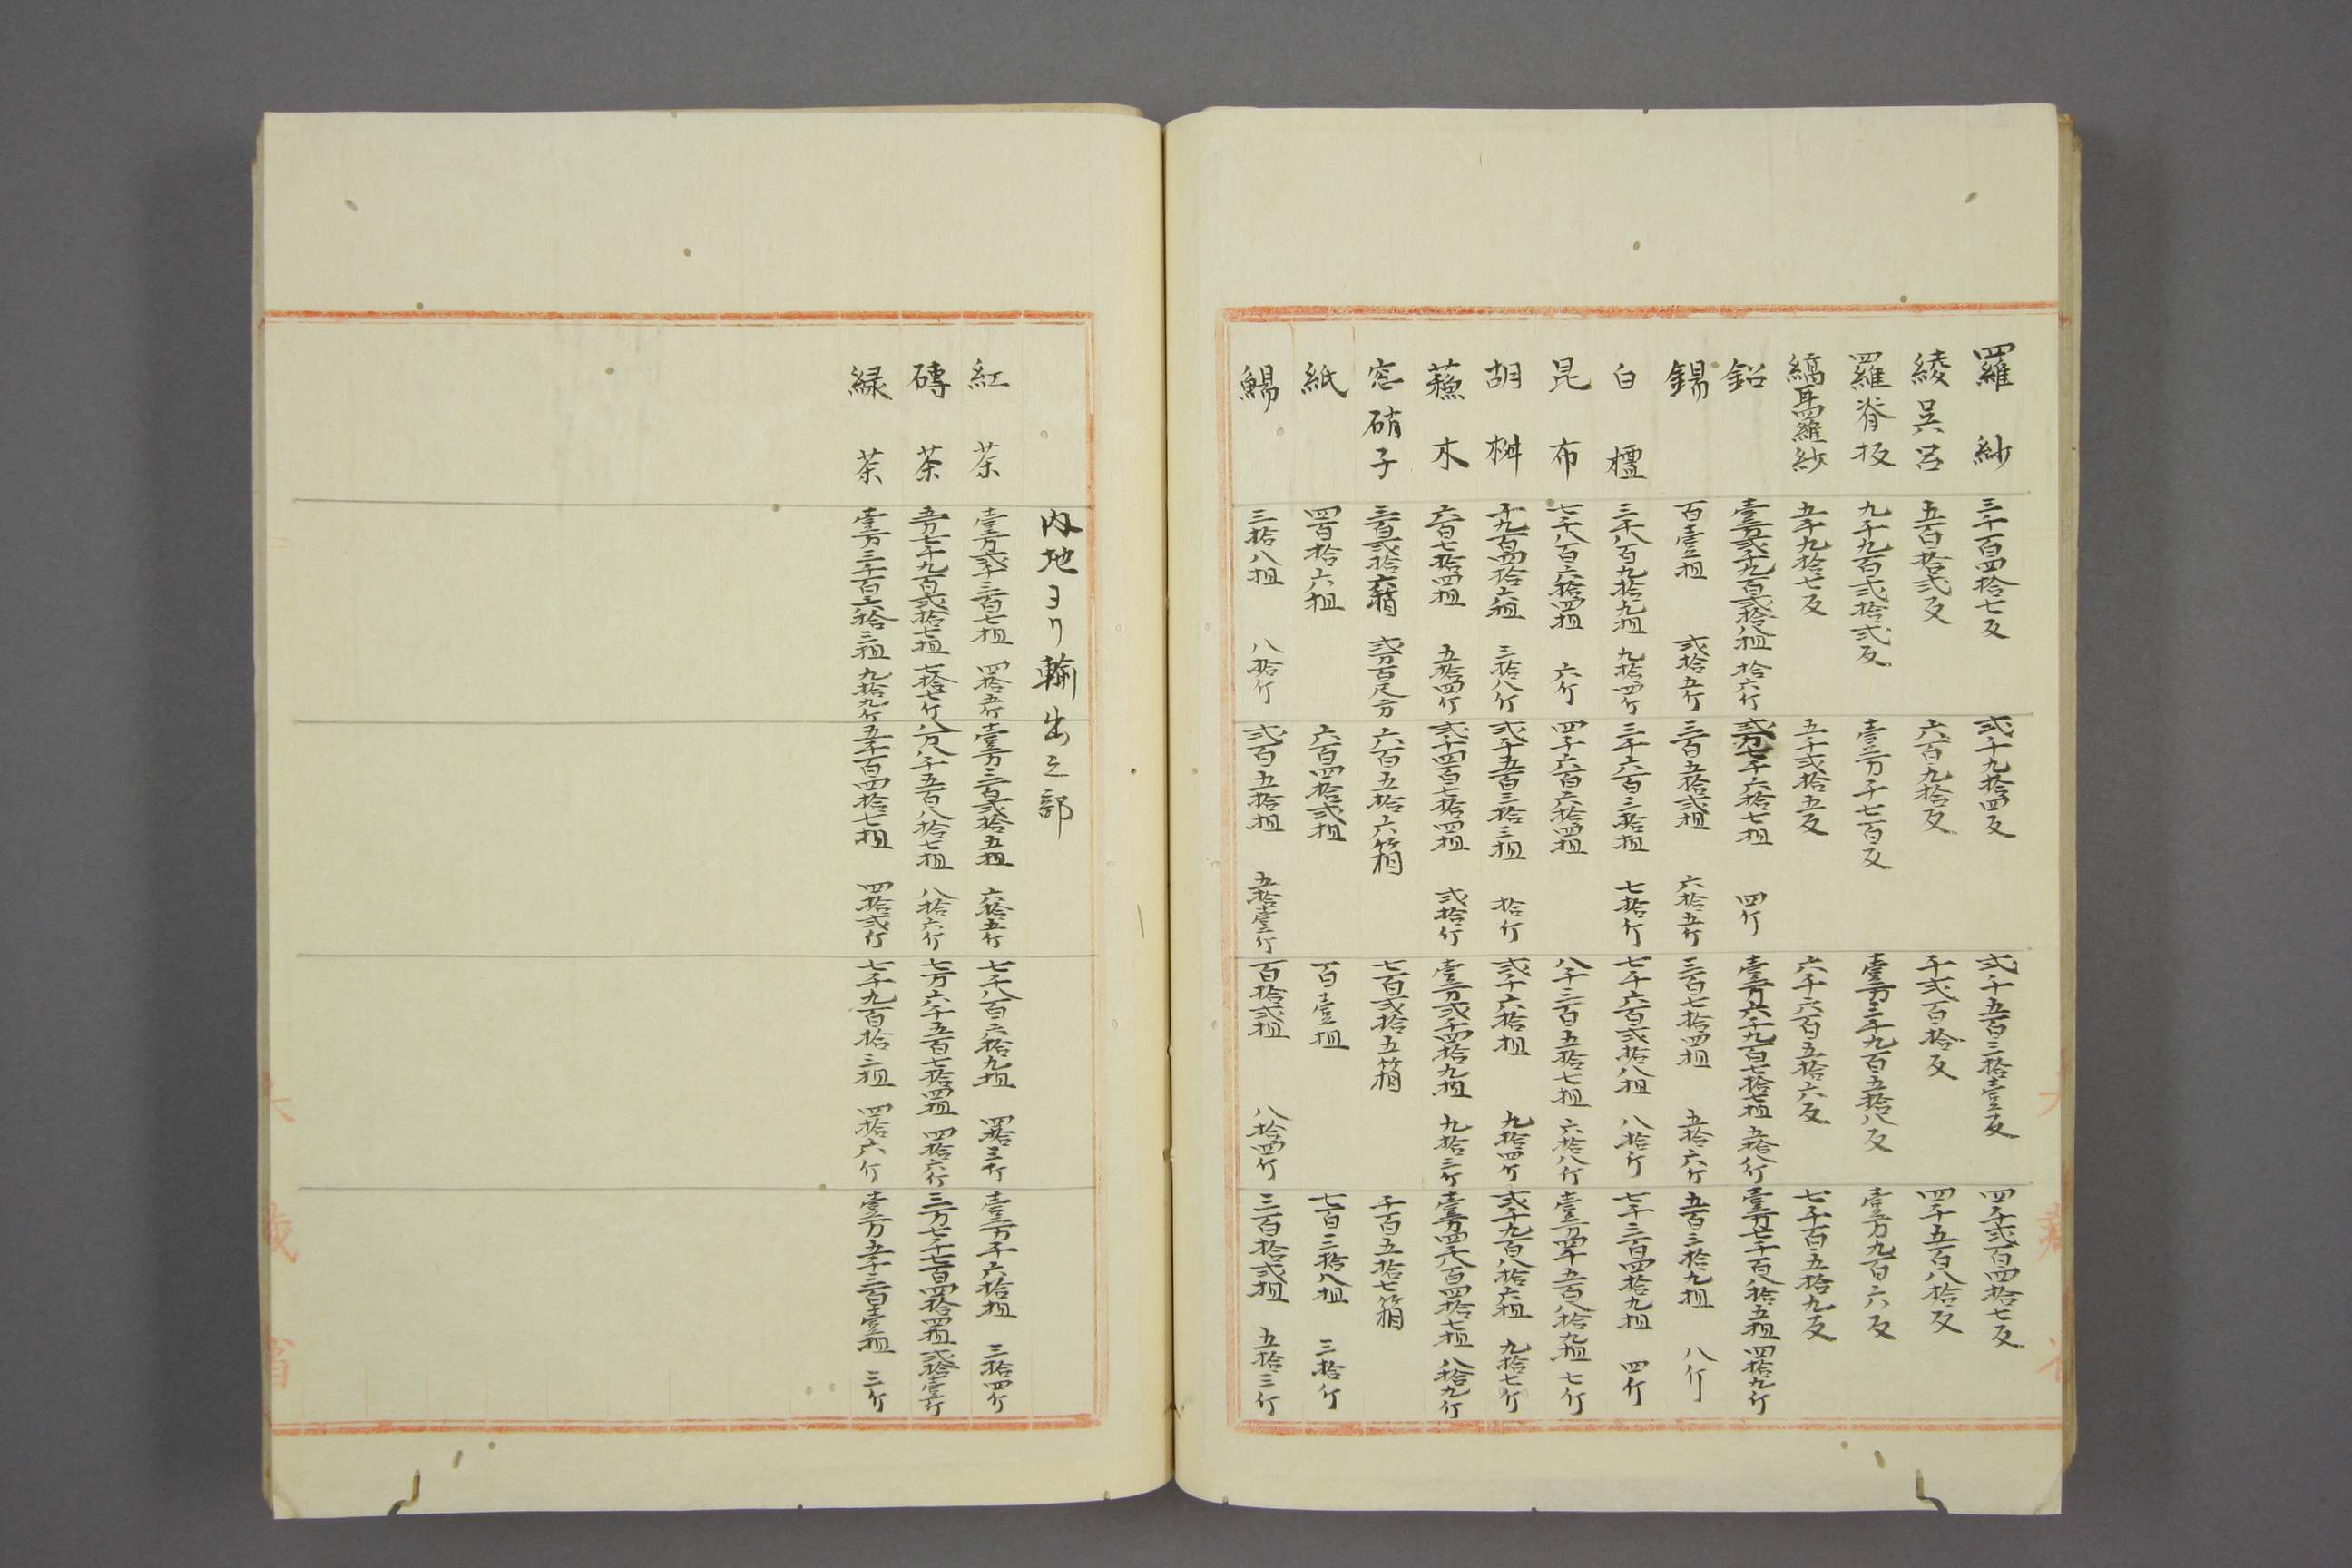 羅紗 三千百四拾七反 弐千九拾四反 弐千五百三拾壹反 四千弐百四拾七反
綾呉呂 五百拾弐反 六百九拾反 千弐百拾反 四千五百八拾反
羅脊板 九千九百弐拾弐反 壹万千七百反 壹万三千九百五拾八反 壹万九百六反
縞耳羅紗 五千九拾七反 五千弐拾五反 六千六百五拾六反 七千百五拾九反
鉛 壹万弐千九百弐拾八担 拾六斤 弐万七千六拾七担 四斤 壹万六千九百七拾七担 五拾八斤 壹万七千百八拾五担 四拾九斤
錫 百壹担 弐拾五斤 三百五拾弐担 六拾五斤 三百七拾四担 五拾六斤 五百三拾九担 八斤
白檀 三千八百九拾九担 九拾四斤 三千六百三拾担 七拾斤 七千六百弐拾八担 八拾斤 七千三百四拾九担 四斤
昆布 七千八百六拾四担 六斤 四千六百六拾四担 八千三百五拾七担 六拾八斤 壹万四千五百八拾九担 七斤
胡椒 千九百四拾六担 三拾八斤 弐千五百三拾三担 拾斤 弐千六拾担 九拾四斤 弐千九百八拾六担 九拾七斤
蘓木 六百七拾四担 五拾四斤 弐千四百七拾四担 弐拾斤 壹万弐千四拾九担 九拾二斤 壹万四千八百四拾七担 八拾九斤
窓硝子 三百弐拾六箱 弐万百尺方 六百五拾六箱 七百弐拾五箱 千百五拾七箱
紙 四百拾六担 六百四拾弐担 百壹担 七百三拾八担 三拾斤
鯣 三拾八担 八拾斤 弐百五拾担 五拾壹斤 百拾弐担 八拾四斤 三百拾弐担 五拾三斤
内地ヨリ輸出之部
紅茶 壹万弐千三百七担 四拾五斤 壹万三百弐拾五担 六拾五斤 七千八百六拾九担 四拾三斤 壹万千六拾担 三拾四斤
磚茶 五万七千九百弐拾七担 七拾七斤 八万八千五百八拾七担 八拾六斤 七万六千五百七拾四担 四拾六斤 三万七千七百四拾四担 弐拾壹斤
緑茶 壹万三千百六拾三担 九拾九斤 五千百四拾七担 四拾弐斤 七千九百拾三担 四拾六斤 壹万五千三百壹担 三斤